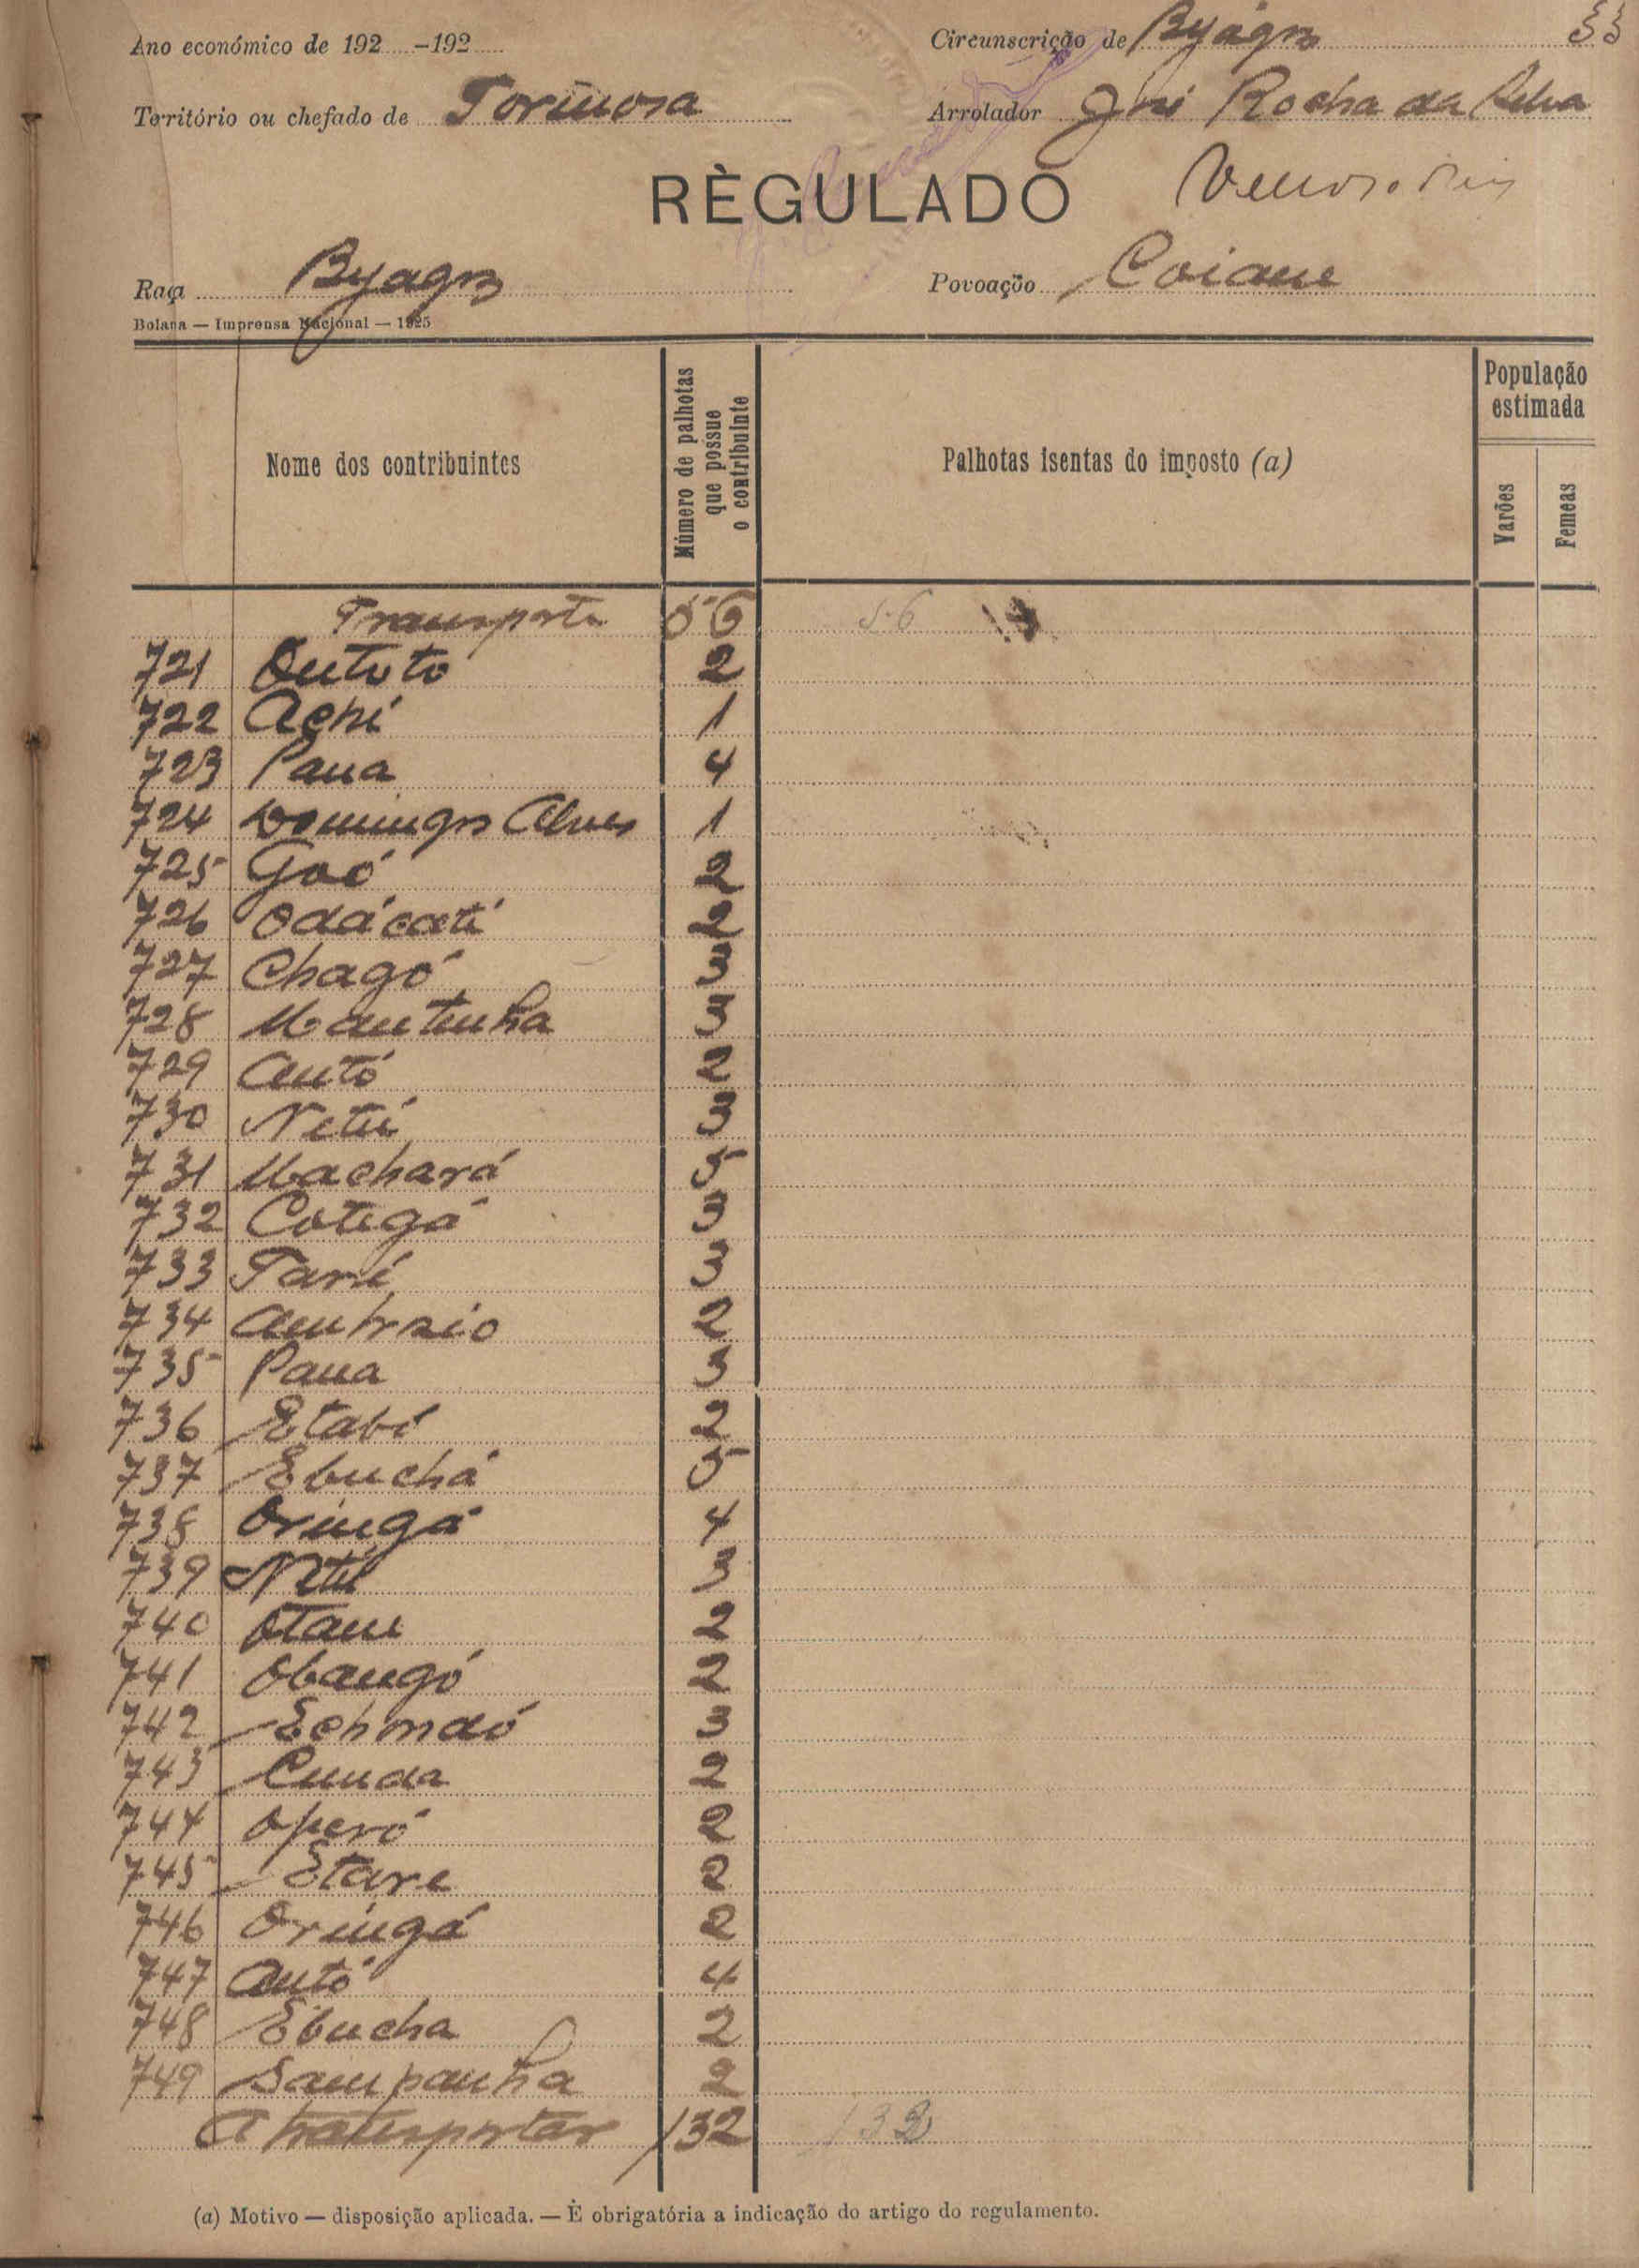 Ano económico de 192 -192
Circunscrição de Byagos
33
Território ou chefado de Formosa
Arrolador José Rocha da Silva
RÈGULADO
Raça Byagos
Povoação
Bolama — Imprensa Nacional — 1925
Nome dos contribuintes
Número de palhotas que possue o contribuinte
Palhotas isentas do imposto (a)
População estimada
Varões
Femeas
Transporte 56 56
721 Ontoto 2
722 Achi 1
723 Pana 4
724 Domingos Alves 1
725 2
726 Odácati 2
727 Chagó 3
728 Mantenha 3
729 Antó 2
730 Netú 3
731 Machará 5
732 Cotegá 3
733 Tari 3
734 Ambrsio 2
735 Pana 3
736 Etabi 2
737 Ebuchá 5
738 Oringá 4
739 Netú 3
740 Otane 2
741 Obangó 2
742 3
743 Cunda 2
744 Operó 2
745 Etare 2
746 Oringá 2
747 Antó 4
748 Ebucha 2
749 Sampanha 2
A transportar 132 132
(a) Motivo — disposição aplicada. — È obrigatória a indicação do artigo do regulamento.